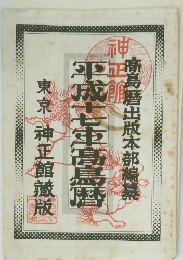 高島暦出版本部編纂
平成十七年高島暦
東京 神正館蔵版
神正館